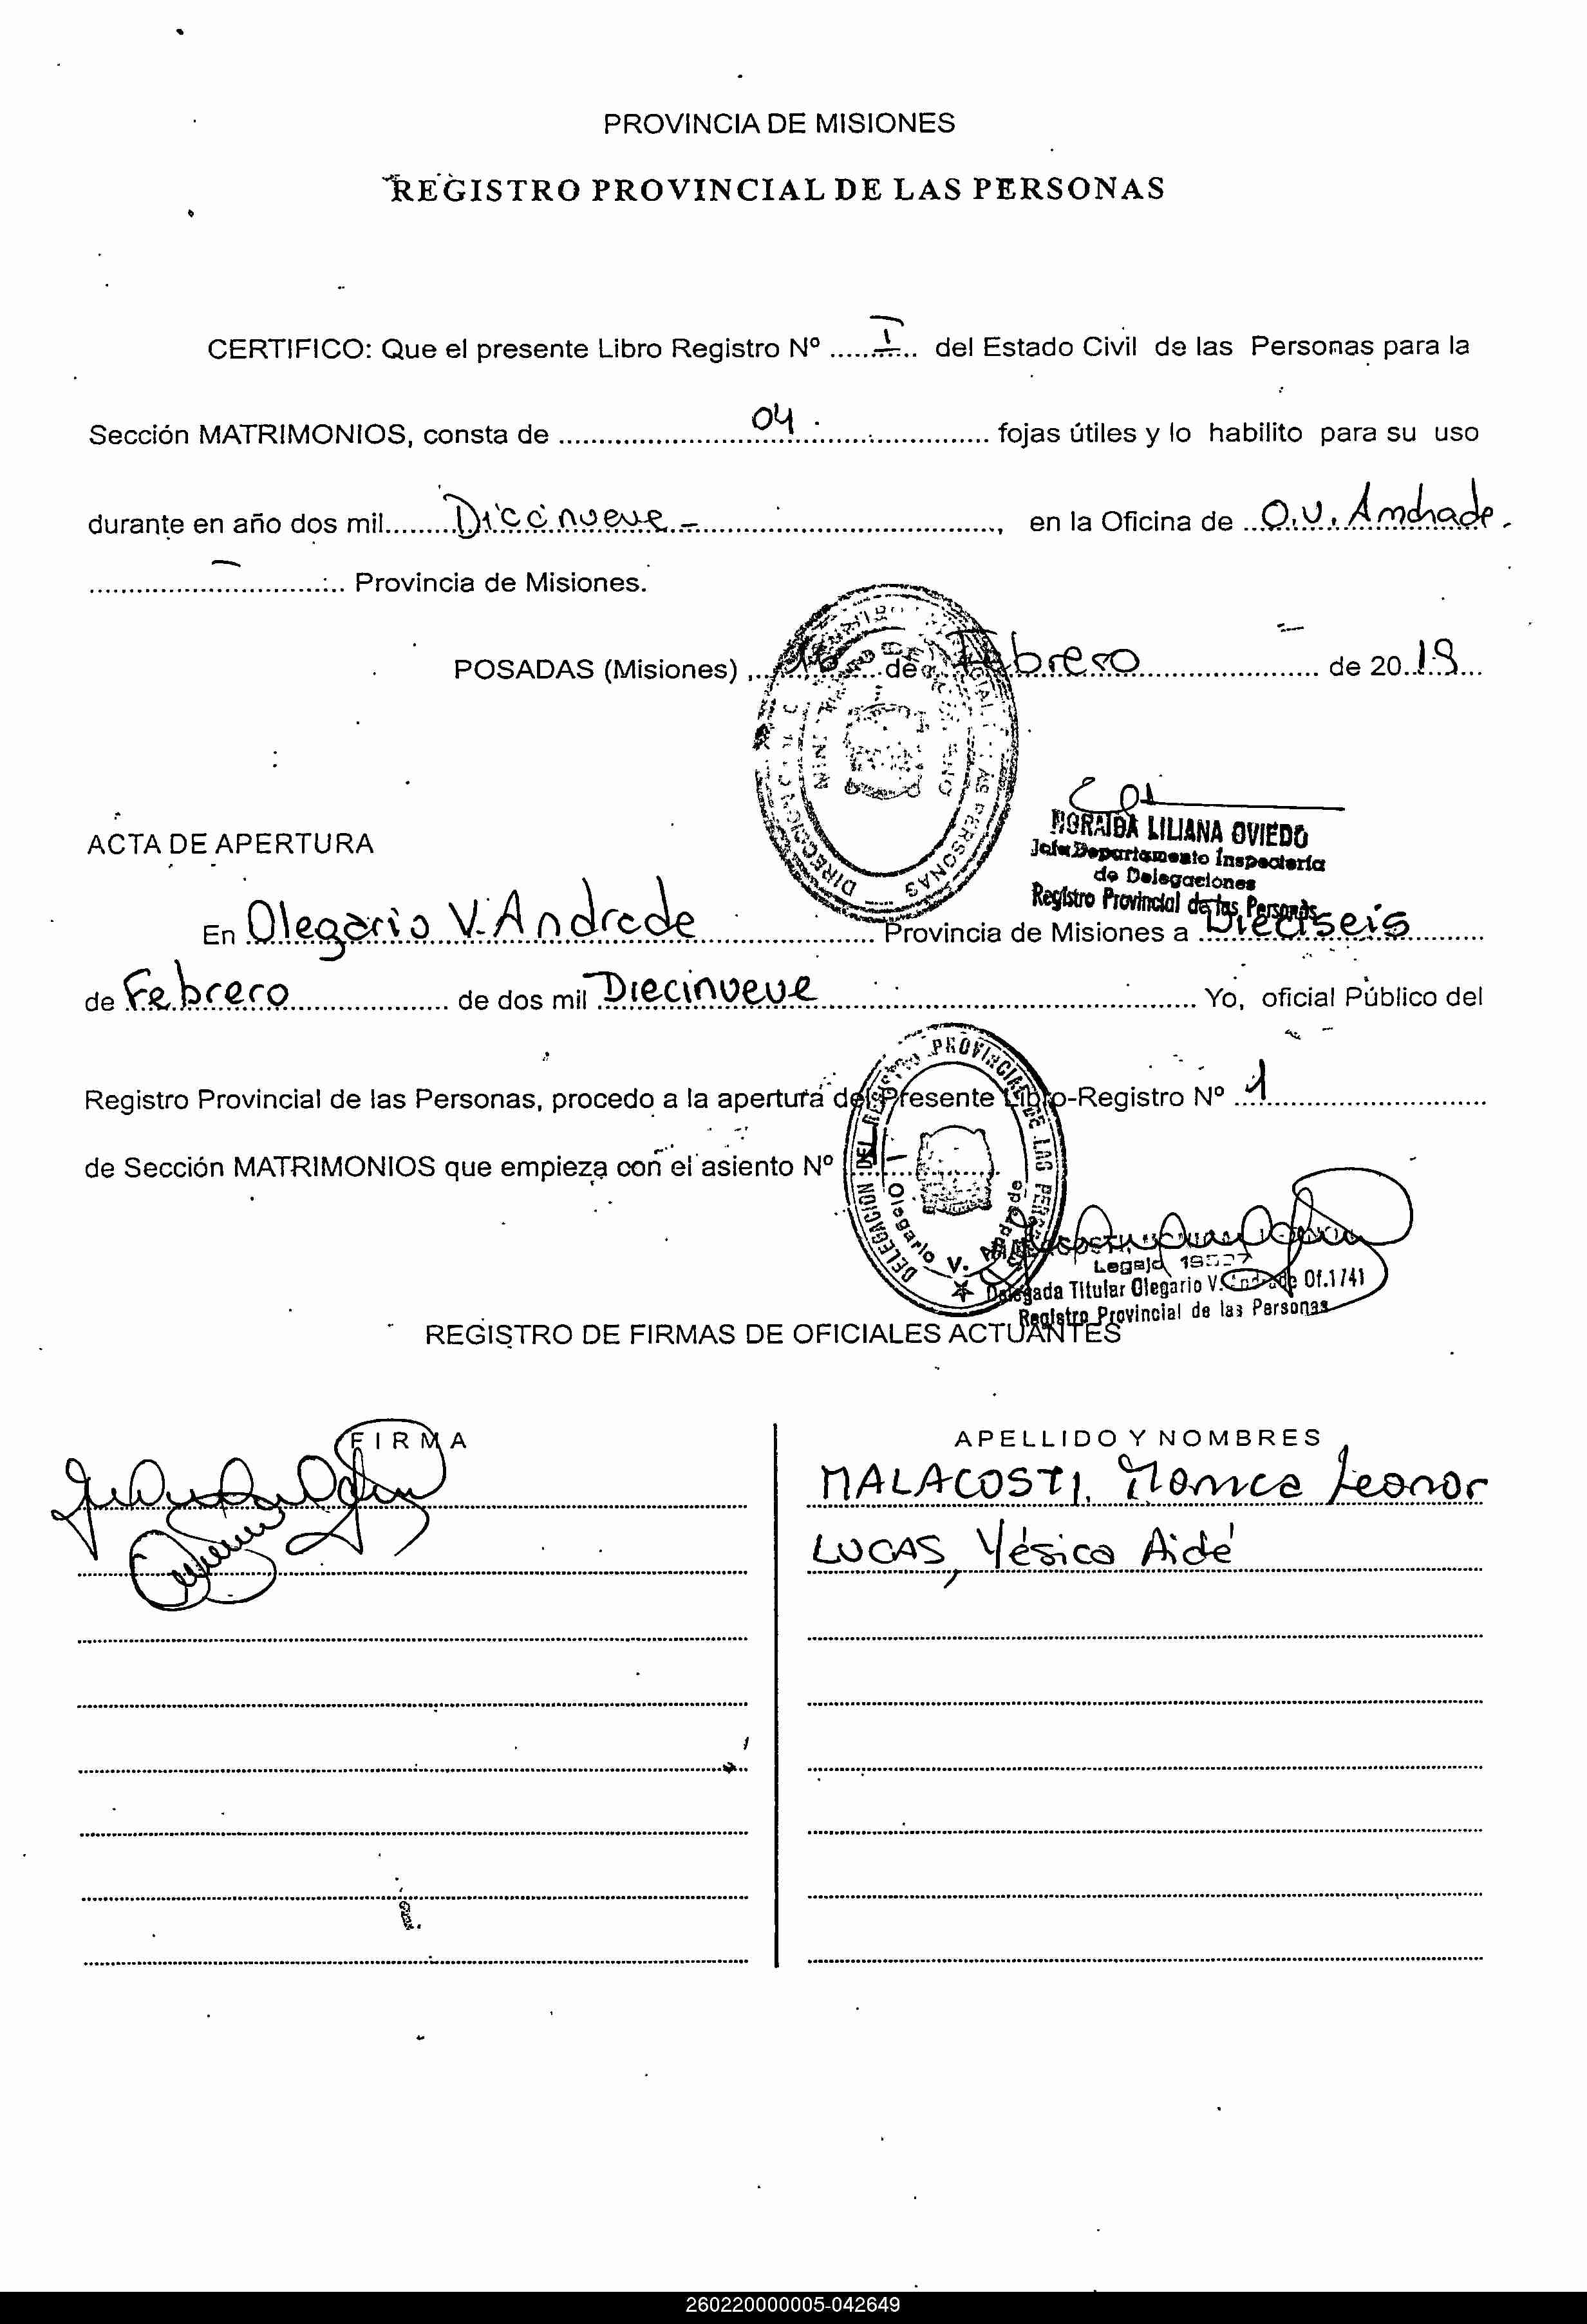 PROVINCIA DE MISIONES
REGISTRO PROVINCIAL DE LAS PERSONAS
CERTIFICO: Que el presente Libro Registro Nº ...I... del Estado Civil de las Personas para la
Sección MATRIMONIOS, consta de ...04... fojas útiles y lo habilito para su uso
durante en año dos mil...Diecinueve-..., en la Oficina de ...O.V. Andrade.
... - ... Provincia de Misiones.
POSADAS (Misiones), ... de Febrero ... de 2019...
NORAIDA LILIANA OVIEDO
Jefa Departamento Inspectoría
de Delegaciones
Registro Provincial de las Personas
ACTA DE APERTURA
En Olegario V. Andrade ... Provincia de Misiones a ...Dieciseis...
de Febrero ... de dos mil Diecinueve ... Yo, oficial Público del
Registro Provincial de las Personas, procedo a la apertura del Presente Libro-Registro Nº ...1...
de Sección MATRIMONIOS que empieza con el asiento Nº 1
DELEGACION DEL REGISTRO PROVINCIAL DE LAS PERSONAS
Olegario V. Andrade
Legajo
Delegada Titular Olegario V. Andrade Of.1741
Registro Provincial de las Personas
REGISTRO DE FIRMAS DE OFICIALES ACTUANTES
FIRMA
APELLIDO Y NOMBRES
MALACOSTI, Monica Leonor
LUCAS, Yésica Aidé
260220000005-042649